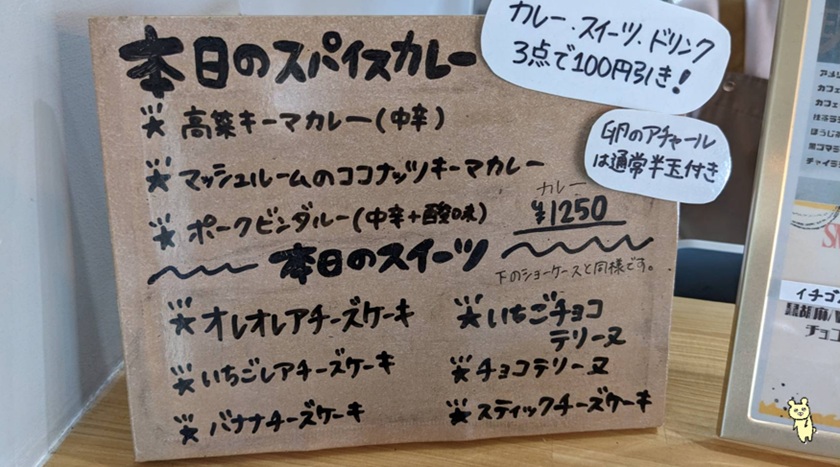 本日のスパイスカレー
カレー・スイーツ・ドリンク
3点で100円引き!
高菜キーマカレー(中辛)
マッシュルームのココナッツキーマカレー
ポークビンダルー(中辛+酸味)
卵のアチャール
は通常半玉付き
カレー
¥1250
本日のスイーツ
下のショーケースと同様です。
オレオレアチーズケーキ
いちごレアチーズケーキ
バナナチーズケーキ
いちごチョコ
テリーヌ
チョコテリーヌ
スティックチーズケーキ
カフェ
カフェ
ほうじ
黒ゴマ
チャイ
イチゴ
黒胡麻
チョコ